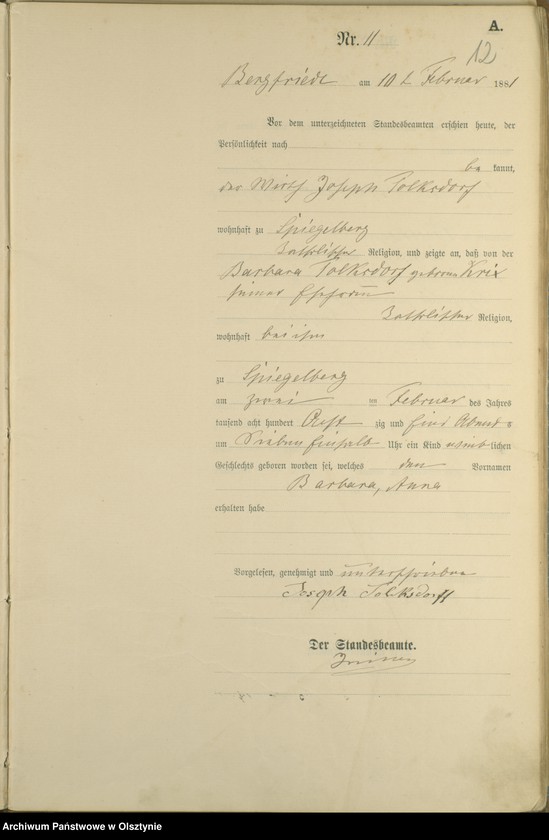 A.
Nr. 11
12
Bergfriede am 10 t Februar 1881
Vor dem unterzeichneten Standesbeamten erschien heute, der
Persönlichkeit nach
be kannt,
der Wirth Joseph Tolksdorf
wohnhaft zu Spiegelberg
Katholischer Religion, und zeigte an, daß von der
Barbara Tolksdorf geborene Krix
seiner Ehefrau
Katholischer Religion,
wohnhaft bei ihm
zu Spiegelberg
am zwei ten Februar des Jahres
tausend acht hundert Acht zig und Eins Abends
um Sieben einhalb Uhr ein Kind weib lichen
Geschlechts geboren worden sei, welches den Vornamen
Barbara, Anna
erhalten habe
Vorgelesen, genehmigt und unterschrieben
Joseph Tolksdorff
Der Standesbeamte.
Archiwum Państwowe w Olsztynie